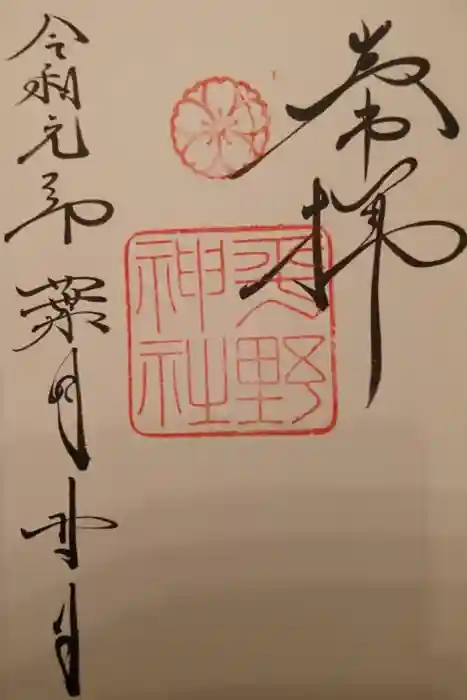 奉拝
平野
神社
令和元年葉月廿日